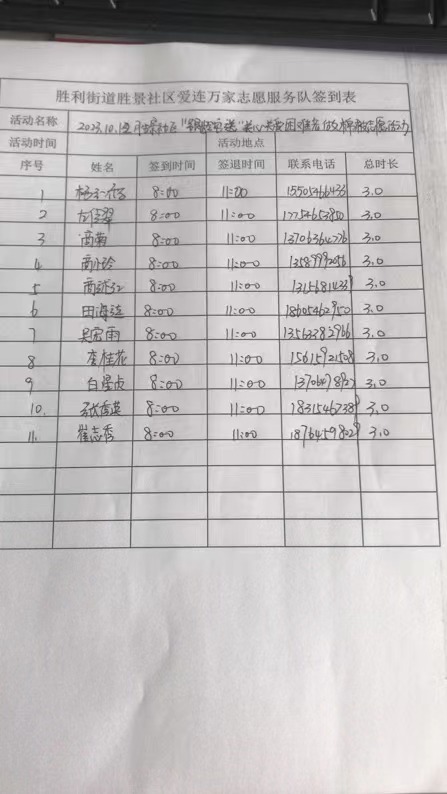 胜利街道胜景社区爱连万家志愿服务队签到表
活动名称 2023.10.12 关心关爱困难者做棉被志愿活动
活动时间 活动地点
序号 姓名 签到时间 签退时间 联系电话 总时长
1 8:00 11:00 15505466433 3.0
2 8:00 11:00 3.0
3 商菊 8:00 11:00 13706364276 3.0
4 商小玲 8:00 11:00 13589992056 3.0
5 8:00 11:00 3.0
6 田海连 8:00 11:00 18605462950 3.0
7 吴宏雨 8:00 11:00 13563382966 3.0
8 李桂花 8:00 11:00 15615921508 3.0
9 白星贞 8:00 11:00 3.0
10. 张秀英 8:00 11:00 18315467389 3.0
11. 崔志秀 8:00 11:00 18764598029 3.0